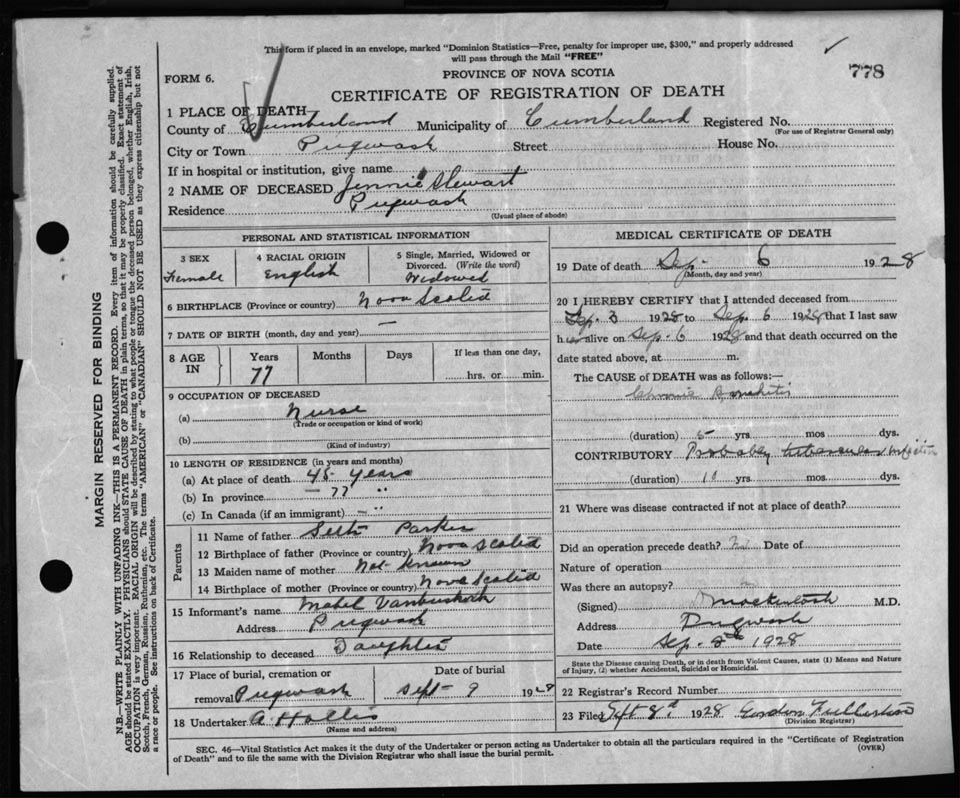 This form if placed in an envelope, marked "Dominion Statistics—Free, penalty for improper use, $300," and properly addressed
will pass through the Mail "FREE"
778
FORM 6.
PROVINCE OF NOVA SCOTIA
CERTIFICATE OF REGISTRATION OF DEATH
1 PLACE OF DEATH
County of Cumberland Municipality of Cumberland Registered No.
(For use of Registrar General only)
City or Town Pugwash Street House No.
If in hospital or institution, give name
2 NAME OF DECEASED Jennie Stewart
Residence Pugwash
(Usual place of abode)
PERSONAL AND STATISTICAL INFORMATION
3 SEX
Female
4 RACIAL ORIGIN
English
5 Single, Married, Widowed or
Divorced. (Write the word)
Widowed
6 BIRTHPLACE (Province or country) Nova Scotia
7 DATE OF BIRTH (month, day and year) —
8 AGE IN
Years
77
Months
Days
If less than one day,
hrs. or min.
9 OCCUPATION OF DECEASED
(a) Nurse
(Trade or occupation or kind of work)
(b)
(Kind of industry)
10 LENGTH OF RESIDENCE (in years and months)
(a) At place of death 45 years
(b) In province — 77 "
(c) In Canada (if an immigrant) — "
Parents
11 Name of father Seth Parker
12 Birthplace of father (Province or country) Nova Scotia
13 Maiden name of mother Not Known
14 Birthplace of mother (Province or country) Nova Scotia
15 Informant's name Mabel Vanbuskirk
Address Pugwash
16 Relationship to deceased Daughter
17 Place of burial, cremation or
removal Pugwash
Date of burial
Sept 9 1928
18 Undertaker A Hollis
(Name and address)
MEDICAL CERTIFICATE OF DEATH
19 Date of death Sep. 6 1928
(Month, day and year)
20 I HEREBY CERTIFY that I attended deceased from
Sep. 3 1928 to Sep. 6 1928 that I last saw
her alive on Sep. 6 1928 and that death occurred on the
date stated above, at m.
The CAUSE of DEATH was as follows:—
Chronic Bronchitis
(duration) 5 yrs. mos. dys.
CONTRIBUTORY Probably tubercular infection
(duration) 10 yrs. mos. dys.
21 Where was disease contracted if not at place of death?
Did an operation precede death? Date of
Nature of operation
Was there an autopsy?
(Signed) Mackintosh M.D.
Address Pugwash
Date Sep. 8th 1928
State the Disease causing Death, or in death from Violent Causes, state (1) Means and Nature
of Injury, (2) whether Accidental, Suicidal or Homicidal.
22 Registrar's Record Number
23 Filed Sept 8th 1928 Gordon Fullerton
(Division Registrar)
SEC. 46—Vital Statistics Act makes it the duty of the Undertaker or person acting as Undertaker to obtain all the particulars required in the "Certificate of Registration
of Death" and to file the same with the Division Registrar who shall issue the burial permit.
(OVER)
MARGIN RESERVED FOR BINDING
N.B.—WRITE PLAINLY WITH UNFADING INK—THIS IS A PERMANENT RECORD. Every item of information should be carefully supplied.
AGE should be stated EXACTLY. PHYSICIANS should STATE CAUSE OF DEATH in plain terms, so that it may be properly classified. Exact statement of
OCCUPATION is very important. RACIAL ORIGIN will be described by stating to what people or tongue the deceased person belonged, whether English, Irish,
Scotch, French, German, Russian, Ruthenian, etc. The terms "AMERICAN" or "CANADIAN" SHOULD NOT BE USED as they express citizenship but not
a race or people. See instructions on back of Certificate.